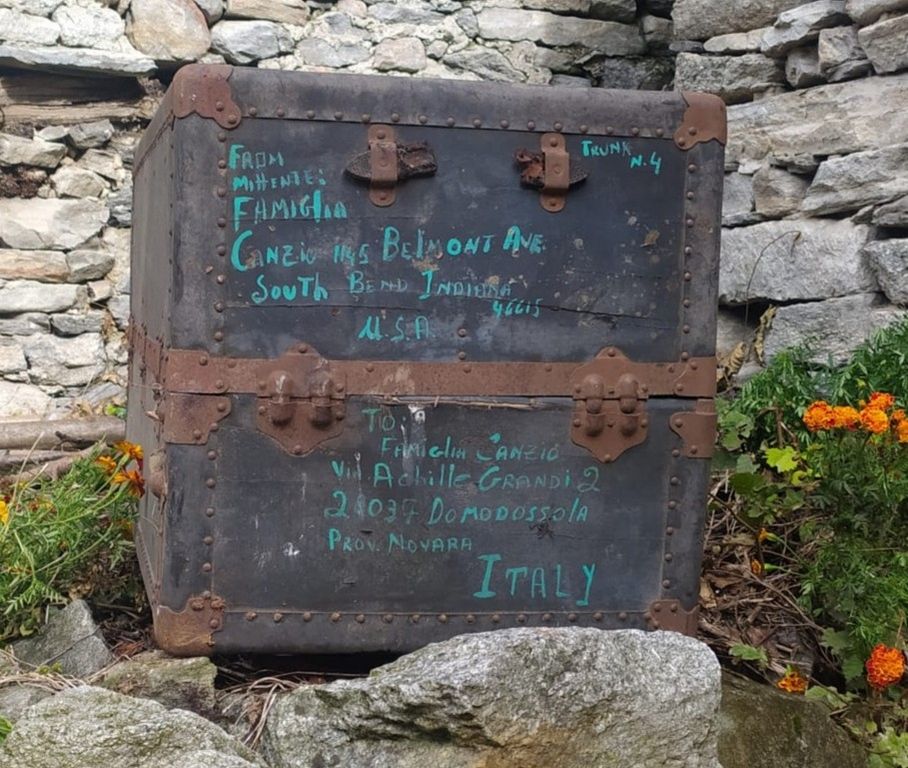 FROM
MITTENTE:
FAMIGLIA
CANZIO 1145 BELMONT AVE.
SOUTH BEND INDIANA
46615
U.S.A.
TRUNK
N.4
TO:
FAMIGLIA CANZIO
VIA AChillE GRANDI 2
28037 DOMODOSSOlA
PROV. NOVARA
ITALY